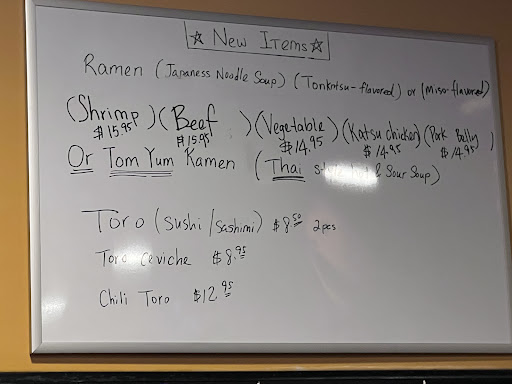 ☆ New Items ☆
Ramen (Japaness Noodle Soup) (Tonkotsu-flavored) or (Miso-flavored)
(Shrimp) (Beef ) (Vegetable) (Katsu chicken) (Pork Belly )
$15.95 $15.95 $14.95 $14.95 $14.95
Or Tom Yum Ramen (Thai & Sour Soup)
Toro (sushi/sashimi) $8.50 2pcs
Toro ceviche $8.95
Chili Toro $12.95